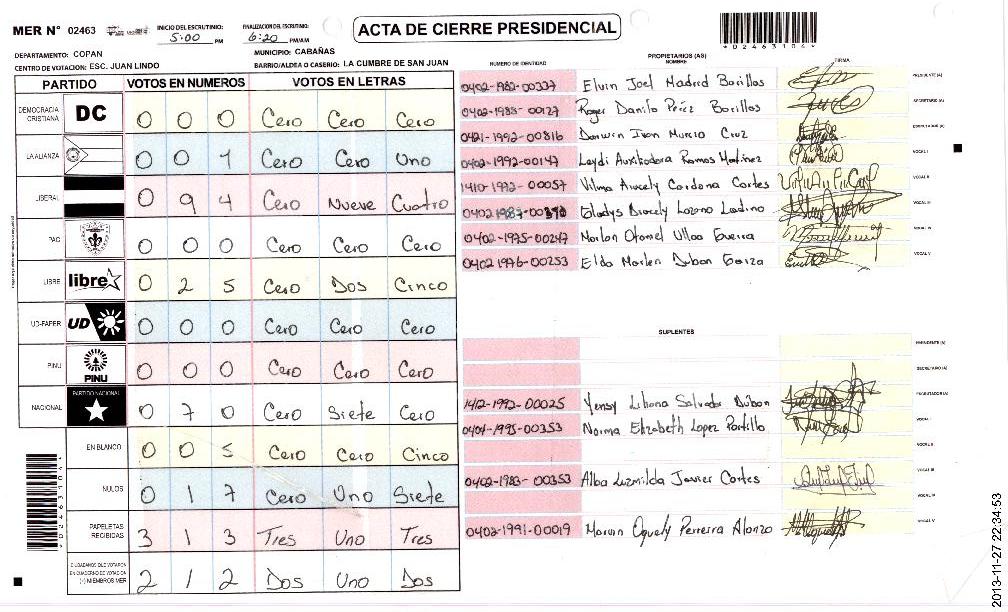 MER N° 02463
INICIO DEL ESCRUTINIO:
5:00 PM
FINALIZACION DEL ESCRUTINIO:
6:20 PM/AM
ACTA DE CIERRE PRESIDENCIAL
DEPARTAMENTO: COPAN
MUNICIPIO: CABAÑAS
CENTRO DE VOTACION: ESC. JUAN LINDO
BARRIO/ALDEA O CASERIO: LA CUMBRE DE SAN JUAN
PARTIDO VOTOS EN NUMEROS VOTOS EN LETRAS
DEMOCRACIA CRISTIANA DC 0 0 0 Cero Cero Cero
LA ALIANZA 0 0 1 Cero Cero Uno
LIBERAL 0 9 4 Cero Nueve Cuatro
PAC 0 0 0 Cero Cero Cero
LIBRE libre 0 2 5 Cero Dos Cinco
UD-FAPER UD 0 0 0 Cero Cero Cero
PINU PINU 0 0 0 Cero Cero Cero
NACIONAL PARTIDO NACIONAL 0 7 0 Cero Siete Cero
EN BLANCO 0 0 5 Cero Cero Cinco
NULOS 0 1 7 Cero Uno Siete
PAPELETAS RECIBIDAS 3 1 3 Tres Uno Tres
CIUDADANOS QUE VOTARON EN CUADERNO DE VOTACION (+) MIEMBROS MER 2 1 2 Dos Uno Dos
*02463104*
PROPIETARIOS (AS)
NUMERO DE IDENTIDAD NOMBRE FIRMA
0402-1982-00337 Elvin Joel Madrid Borillos PRESIDENTE (A)
0402-1988-00127 Roger Danilo Peréz Borillos SECRETARIO (A)
0421-1992-00816 Darwin Ivan Murcio Cruz ESCRUTADOR (A)
0402-1992-00147 Leydi Auxiliadora Ramos Martinez VOCAL I
1410-1992-00057 Vilma Aracely Cardona Cortes VOCAL II
0402 1987-00370 Gladys Aracely Lozano Ladino VOCAL III
0402-1975-00247 Marlon Otomel Ulloa Guerra VOCAL IV
0402 1976-00253 Elda Marlen Dubon Garza VOCAL V
SUPLENTES
PRESIDENTE (A)
SECRETARIO (A)
1412-1992-00025 Yensy Liliana Salvador Dubon ESCRUTADOR (A)
0404-1995-00353 Norma Elizabeth Lopez Portillo VOCAL I
VOCAL II
0402-1983-00353 Alba Luzmilda Javier Cortes VOCAL III
VOCAL IV
0402-1991-00019 Marvin Oquely Perreira Alonzo VOCAL V
*02463104*
2013-11-27 22:34:53